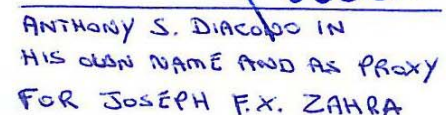 ANTHONY S. DIACONO IN
HIS OWN NAME AND AS PROXY
FOR JOSEPH F.X. ZAHRA